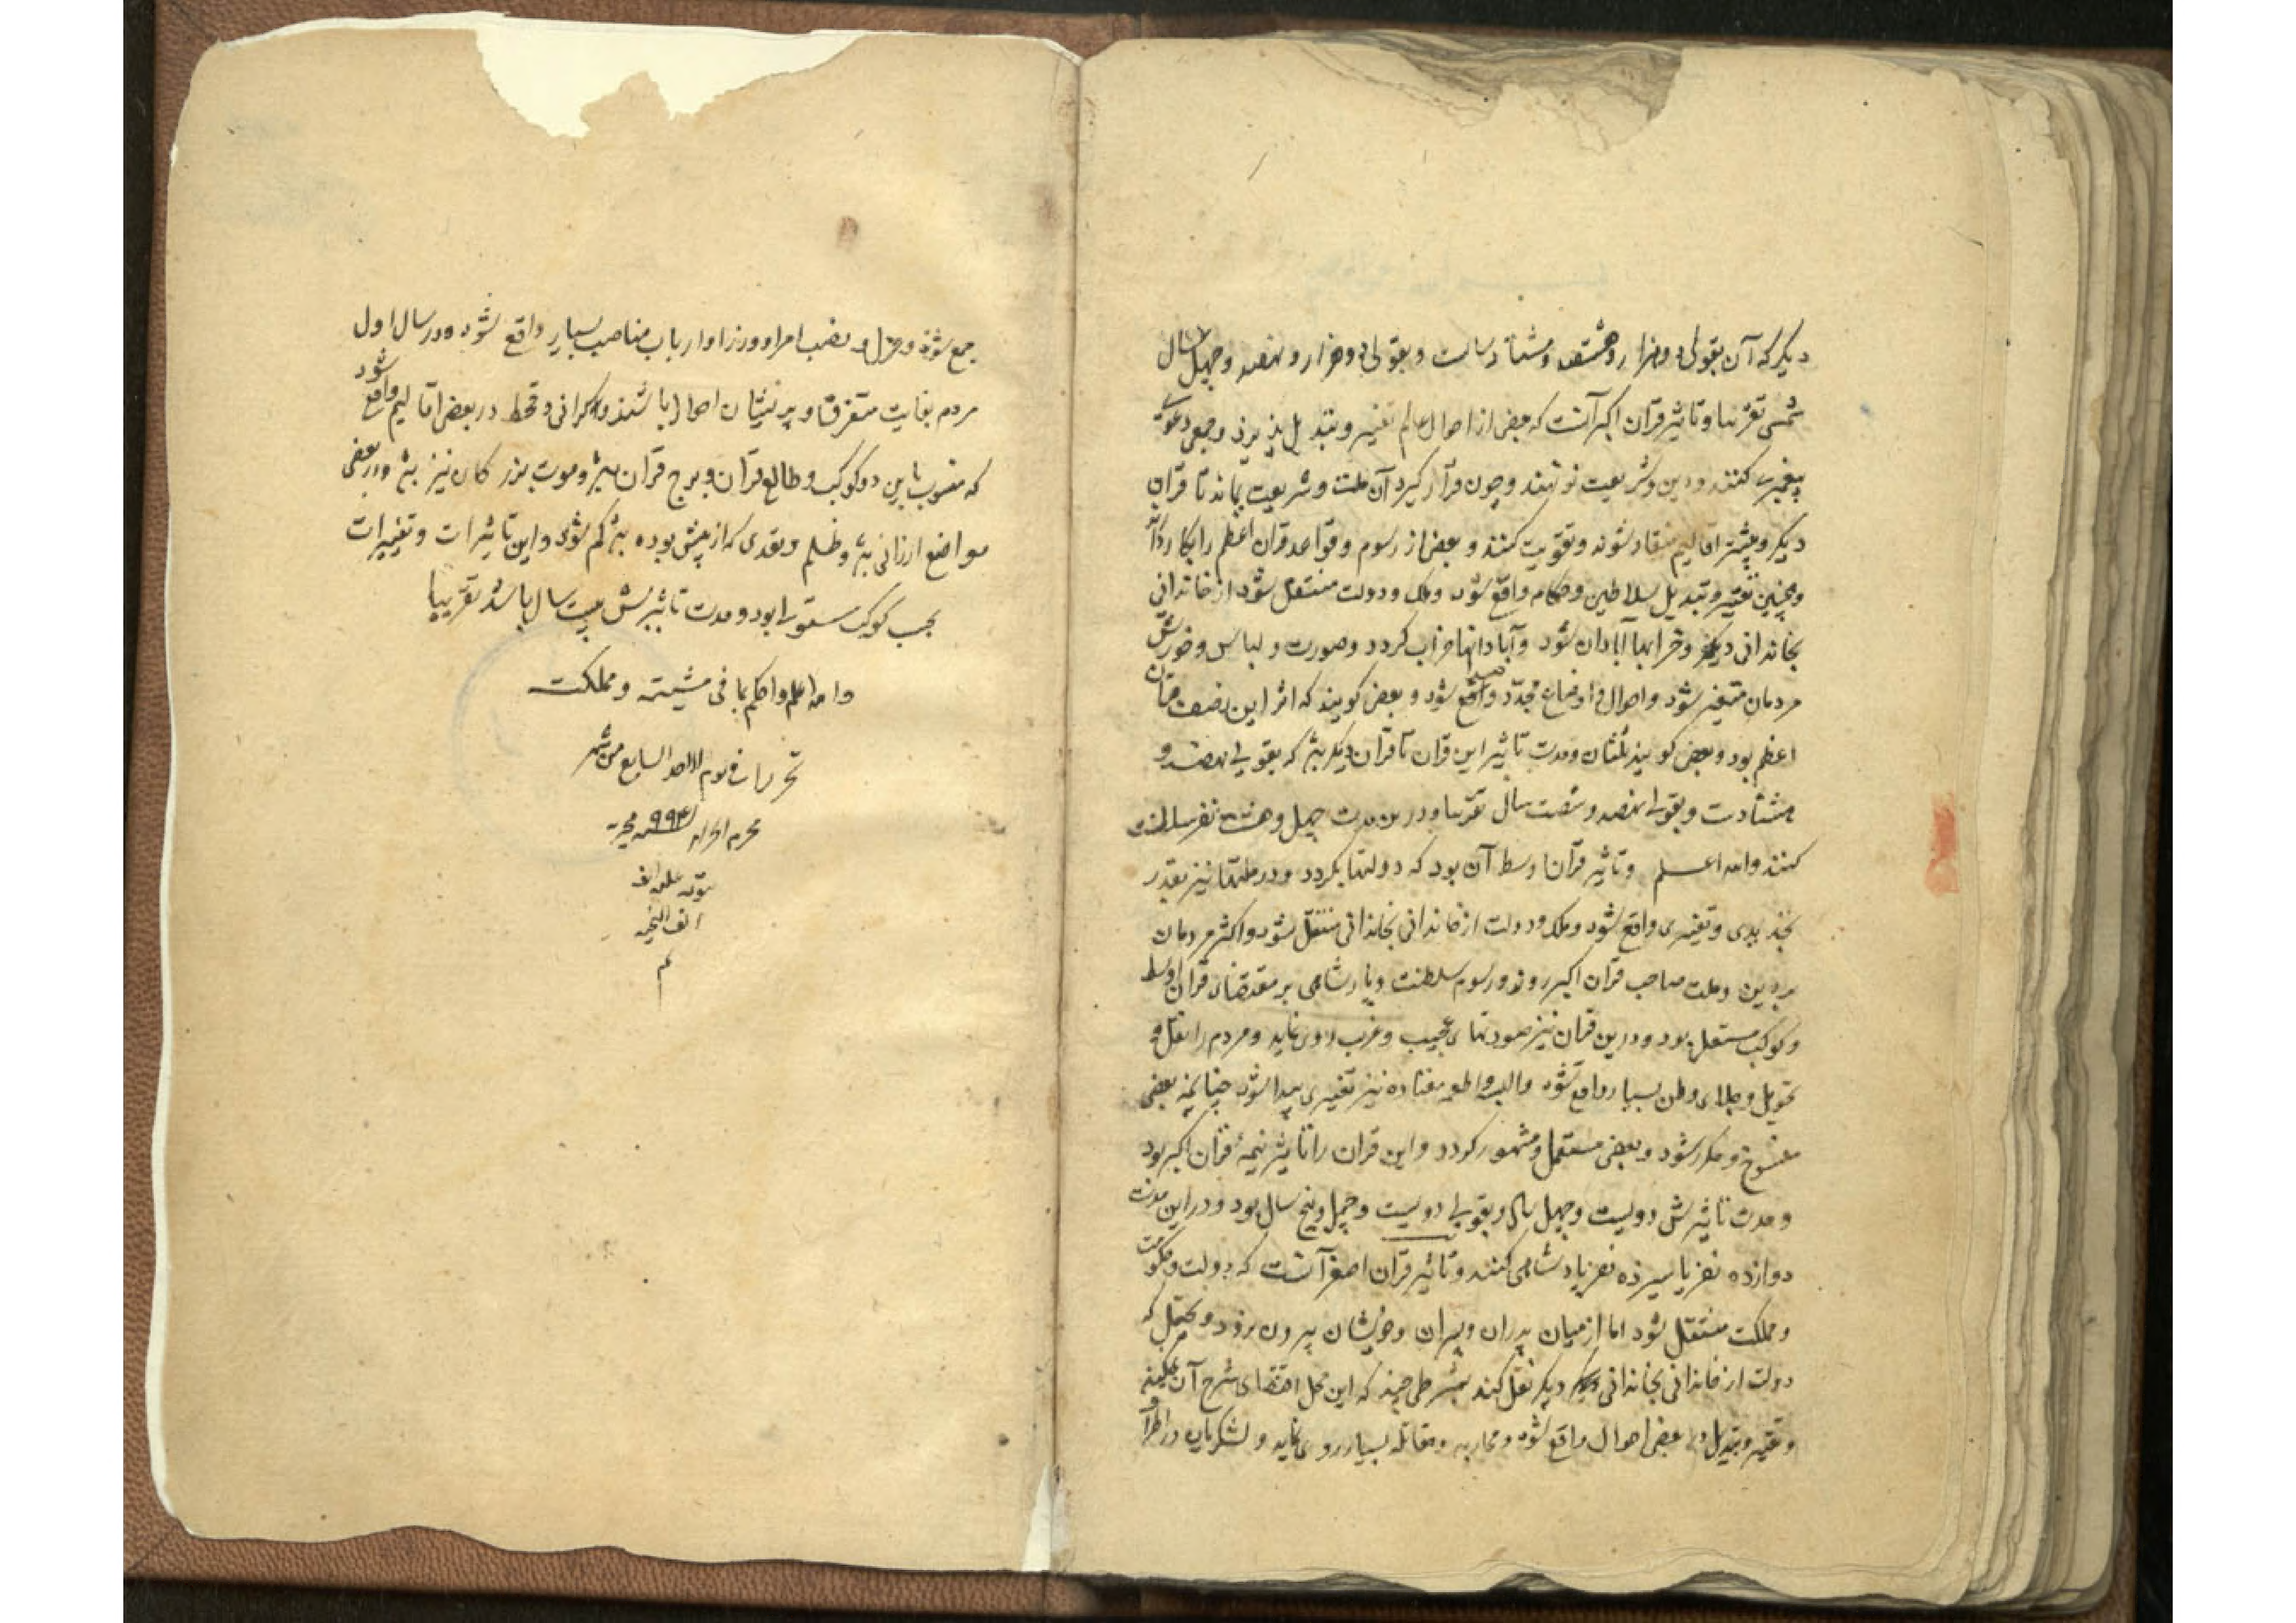 دیگر که آن بقولی دو هزار و هشتصد و هشتاد سالست و بقولی دو هزار و نهصد و چهل سال
شمسی تقریبا و تاثیر قران اکبر آنست که بعضی از احوال عالم تغییر و تبدیل پذیرد و جمعی دعوی
پیغمبری کنند و دین و شریعت نو نهند و چون قرار گیرد آن ملت و شریعت بماند تا قران
دیگر و بیشتر اقالیم منقاد شوند و تقویت کنند و بعضی از رسوم و قواعد قران اعظم را بکار دارند
و همچنین تغییر و تبدیل سلاطین و حکام واقع شود و ملک و دولت منتقل شود از خاندانی
بخاندانی دیگر و خرابیها آبادان شود و آبادانیها خراب گردد و صورت و لباس و خورش
مردمان متغیر شود و احوال و اوضاع مجدد واقع شود و بعضی گویند که اثر این نصف قران
اعظم بود و بعضی گویند ثلثان و مدت تاثیر این قران تا قران دیگر بود که بقولی نهصد و
هشتادست و بقولی نهصد و شصت سال تقریبا و درین مدت چهل و هشت نفر سلطنت
کنند والله اعلم و تاثیر قران اوسط آن بود که دولتها بگردد و در ملتها نیز بقدر
تجدیدی و تغییری واقع شود و ملک و دولت از خاندانی بخاندانی منتقل شود و اکثر مردمان
بر دین و ملت صاحب قران اکبر روند و رسوم سلطنت و پادشاهی بر مقتضای قران اوسط
و کوکب مستعلی بود و درین قران نیز صورتهای عجیب و غریب روی نماید و مردم را نقل و
تحویل و جلای وطن بسیار واقع شود و البسه و اطعمه معتاده نیز تغییری پیدا شود چنانچه بعضی
منسوخ و مکرر شود و بعضی مستعمل و مشهور گردد و این قران را تاثیر نیمه قران اکبر بود
و مدت تاثیرش دویست و چهل سال و بقولی دویست و چهل و پنج سال بود و در این مدت
دوازده نفر یا سیزده نفر پادشاهی کنند و تاثیر قران اصغر آنست که دولت و حکومت
و مملکت منتقل شود اما از میان پدران و پسران و خویشان بیرون نرود و محتمل که
دولت از خاندانی بخاندانی دیگر نقل کند بشرطی چند که این محل اقتضای شرح آن نمیکند
و تغییر و تبدیل در بعضی احوال واقع شود و محاربه و مقاتله بسیار روی نماید و لشکریان در اطراف
جمع شوند و عزل و نصب امرا و وزرا و ارباب مناصب بسیار واقع شود و در سال اول
مردم بغایت متفرق و پریشان احوال باشند و گرانی و قحط در بعضی اقالیم واقع شود
که منسوب باین دو کوکب و طالع قران و برج قران بود و موت بزرگان نیز بود و در بعضی
مواضع ارزانی بود و ظلم و تعدی که از پیش بوده بود کم شود و این تاثیرات و تغییرات
بحسب کوکب مستولی بود و مدت تاثیرش بیست سال باشد تقریبا
والله اعلم و احکم بما فی مشیته و مملکته
تحریرا فی یوم الاحد السابع من شهر
محرم الحرام سنه ۹۹۳ هجریه